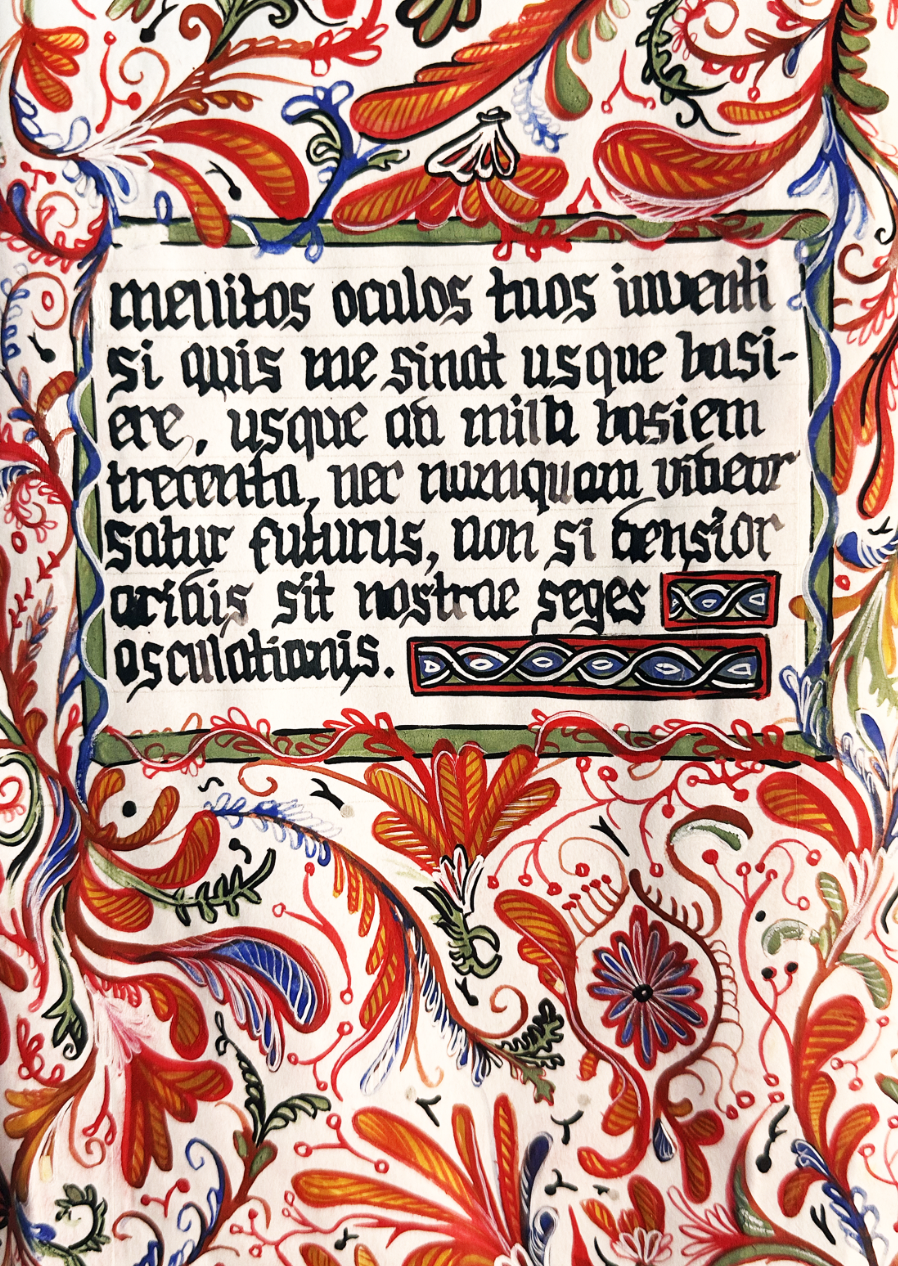 mellitos oculos tuos iuventi
si quis me sinat usque basi-
ere, usque ad milia basiem
trecenta, nec numquam videar
satur futurus, non si densior
aridis sit nostrae seges
osculationis.